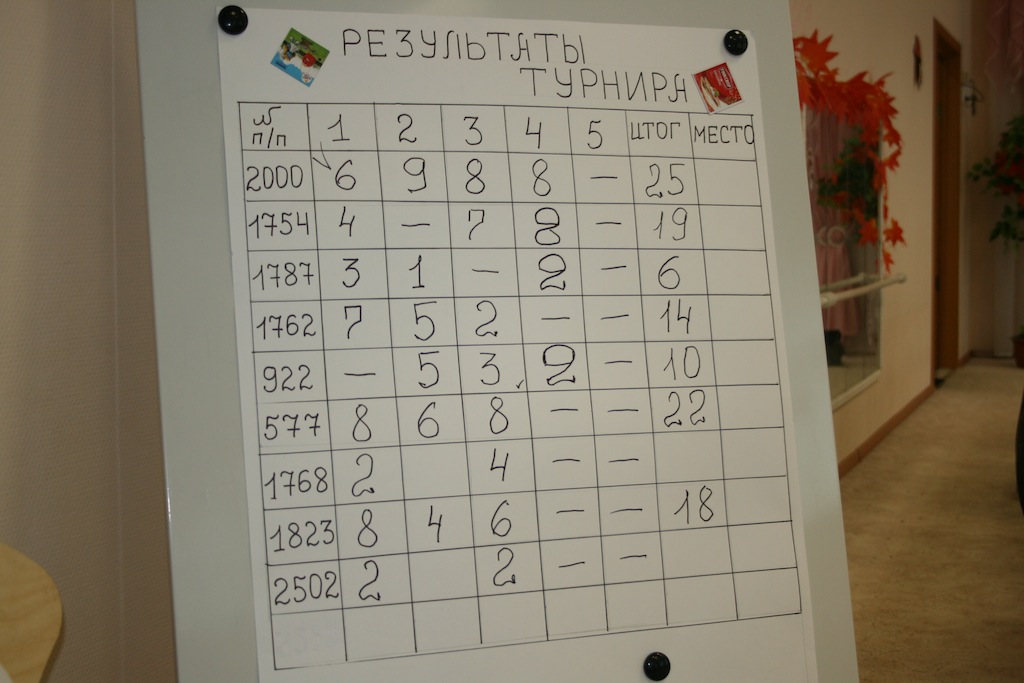 РЕЗУЛЬТАТЫ
ТУРНИРА
№ п/п 1 2 3 4 5 ИТОГ МЕСТО
2000 6 9 8 8 – 25
1754 4 – 7 8 – 19
1787 3 1 – 2 – 6
1762 7 5 2 – – 14
922 – 5 3 2 – 10
577 8 6 8 – – 22
1768 2 4 – –
1823 8 4 6 – – 18
2502 2 2 – –